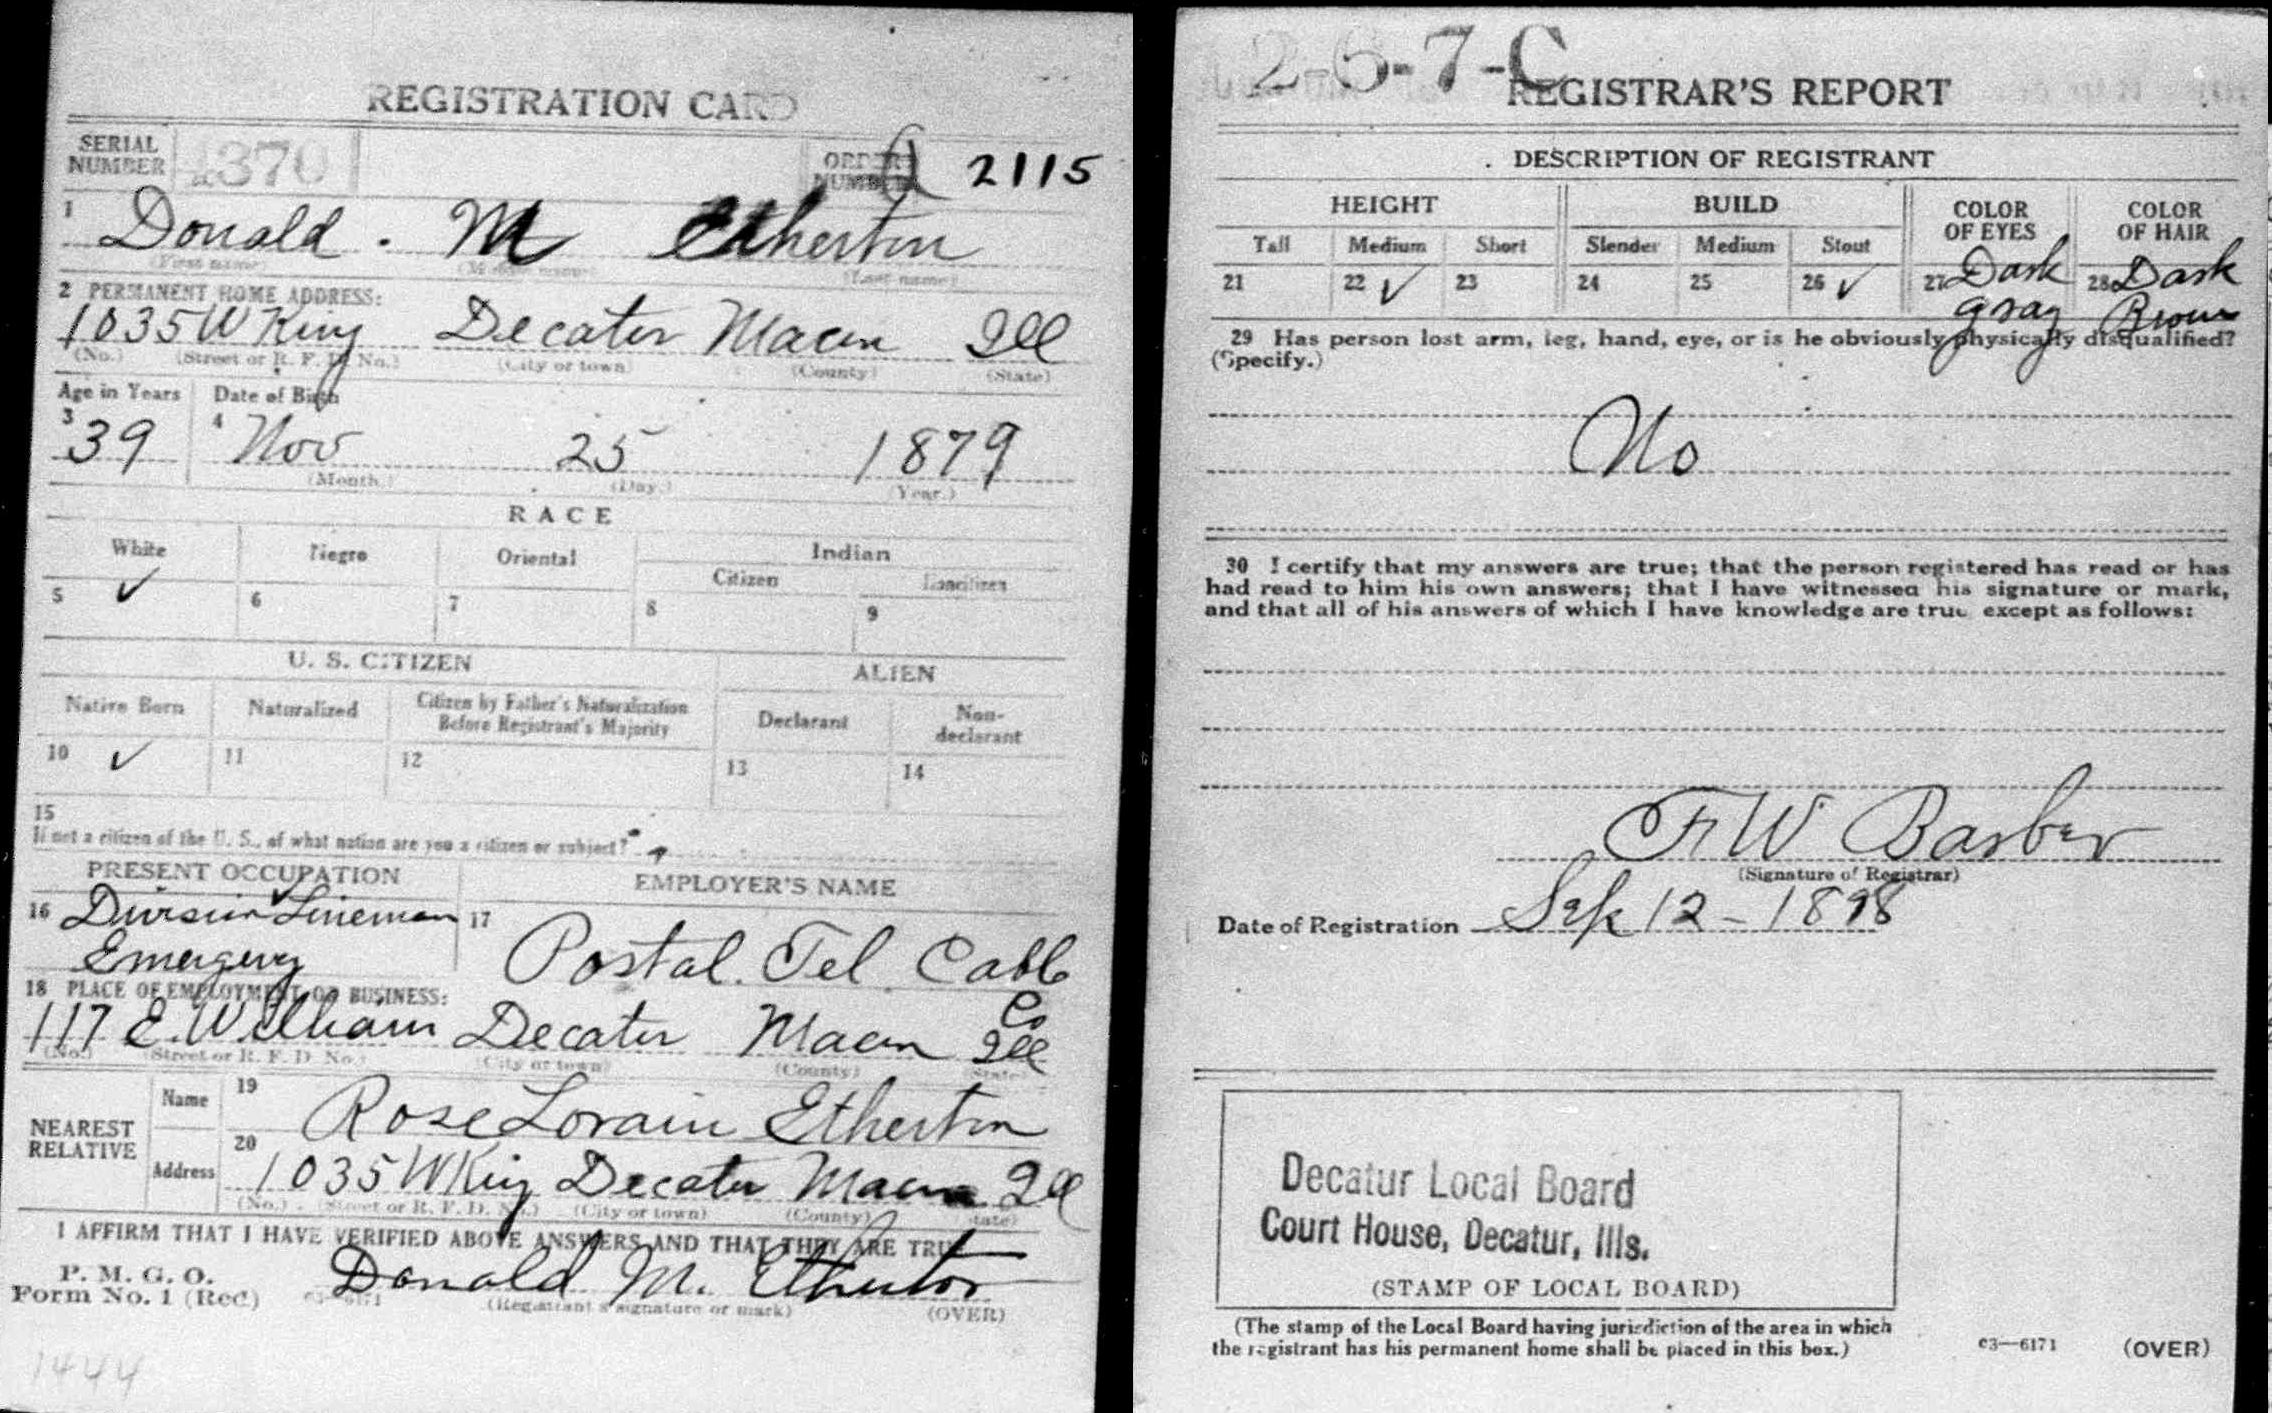 REGISTRATION CARD
SERIAL NUMBER 370 ORDER NUMBER A 2115
1 Donald . M Etherton
(First name) (Middle name) (Last name)
2 PERMANENT HOME ADDRESS:
1035 W King Decatur Macon Ill
(No.) (Street or R. F. D. No.) (City or town) (County) (State)
Age in Years Date of Birth
3 39 4 Nov 25 1879
(Month.) (Day.) (Year.)
RACE
White Negro Oriental Indian
Citizen Noncitizen
5 ✓ 6 7 8 9
U. S. CITIZEN ALIEN
Native Born Naturalized Citizen by Father's Naturalization Before Registrant's Majority Declarant Non-declarant
10 ✓ 11 12 13 14
15
If not a citizen of the U. S., of what nation are you a citizen or subject?
PRESENT OCCUPATION EMPLOYER'S NAME
16 Division Lineman 17 Postal. Tel. Cable Co
Emergency
18 PLACE OF EMPLOYMENT OR BUSINESS:
117 E. William Decatur Macon Ill
(No.) (Street or R. F. D. No.) (City or town) (County) (State)
NEAREST RELATIVE
Name 19 Rose Lorain Etherton
Address 20 1035 W King Decatur Macon Ill
(No.) (Street or R. F. D. No.) (City or town) (County) (State)
I AFFIRM THAT I HAVE VERIFIED ABOVE ANSWERS AND THAT THEY ARE TRUE
P. M. G. O.
Form No. 1 (Red) c3—6171 Donald M. Etherton
(Registrant's signature or mark) (OVER)
1444
2-6-7-C
REGISTRAR'S REPORT
DESCRIPTION OF REGISTRANT
HEIGHT BUILD COLOR OF EYES COLOR OF HAIR
Tall Medium Short Slender Medium Stout
21 22 ✓ 23 24 25 26 ✓ 27 Dark gray 28 Dark Brown
29 Has person lost arm, leg, hand, eye, or is he obviously physically disqualified?
(Specify.)
No
30 I certify that my answers are true; that the person registered has read or has
had read to him his own answers; that I have witnessed his signature or mark,
and that all of his answers of which I have knowledge are true except as follows:
F W Barber
(Signature of Registrar)
Date of Registration Sep 12 - 1898
Decatur Local Board
Court House, Decatur, Ills.
(STAMP OF LOCAL BOARD)
(The stamp of the Local Board having jurisdiction of the area in which
the registrant has his permanent home shall be placed in this box.)
c3—6171 (OVER)